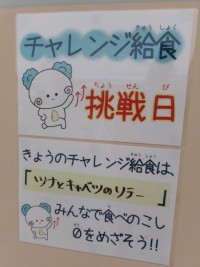 チャレンジ給食
きゅう しょく
挑戦日
ちょう せん び
きょうのチャレンジ給食は、
きゅうしょく
「ツナとキャベツのソテー」
みんなで食べのこし
た
0をめざそう!!